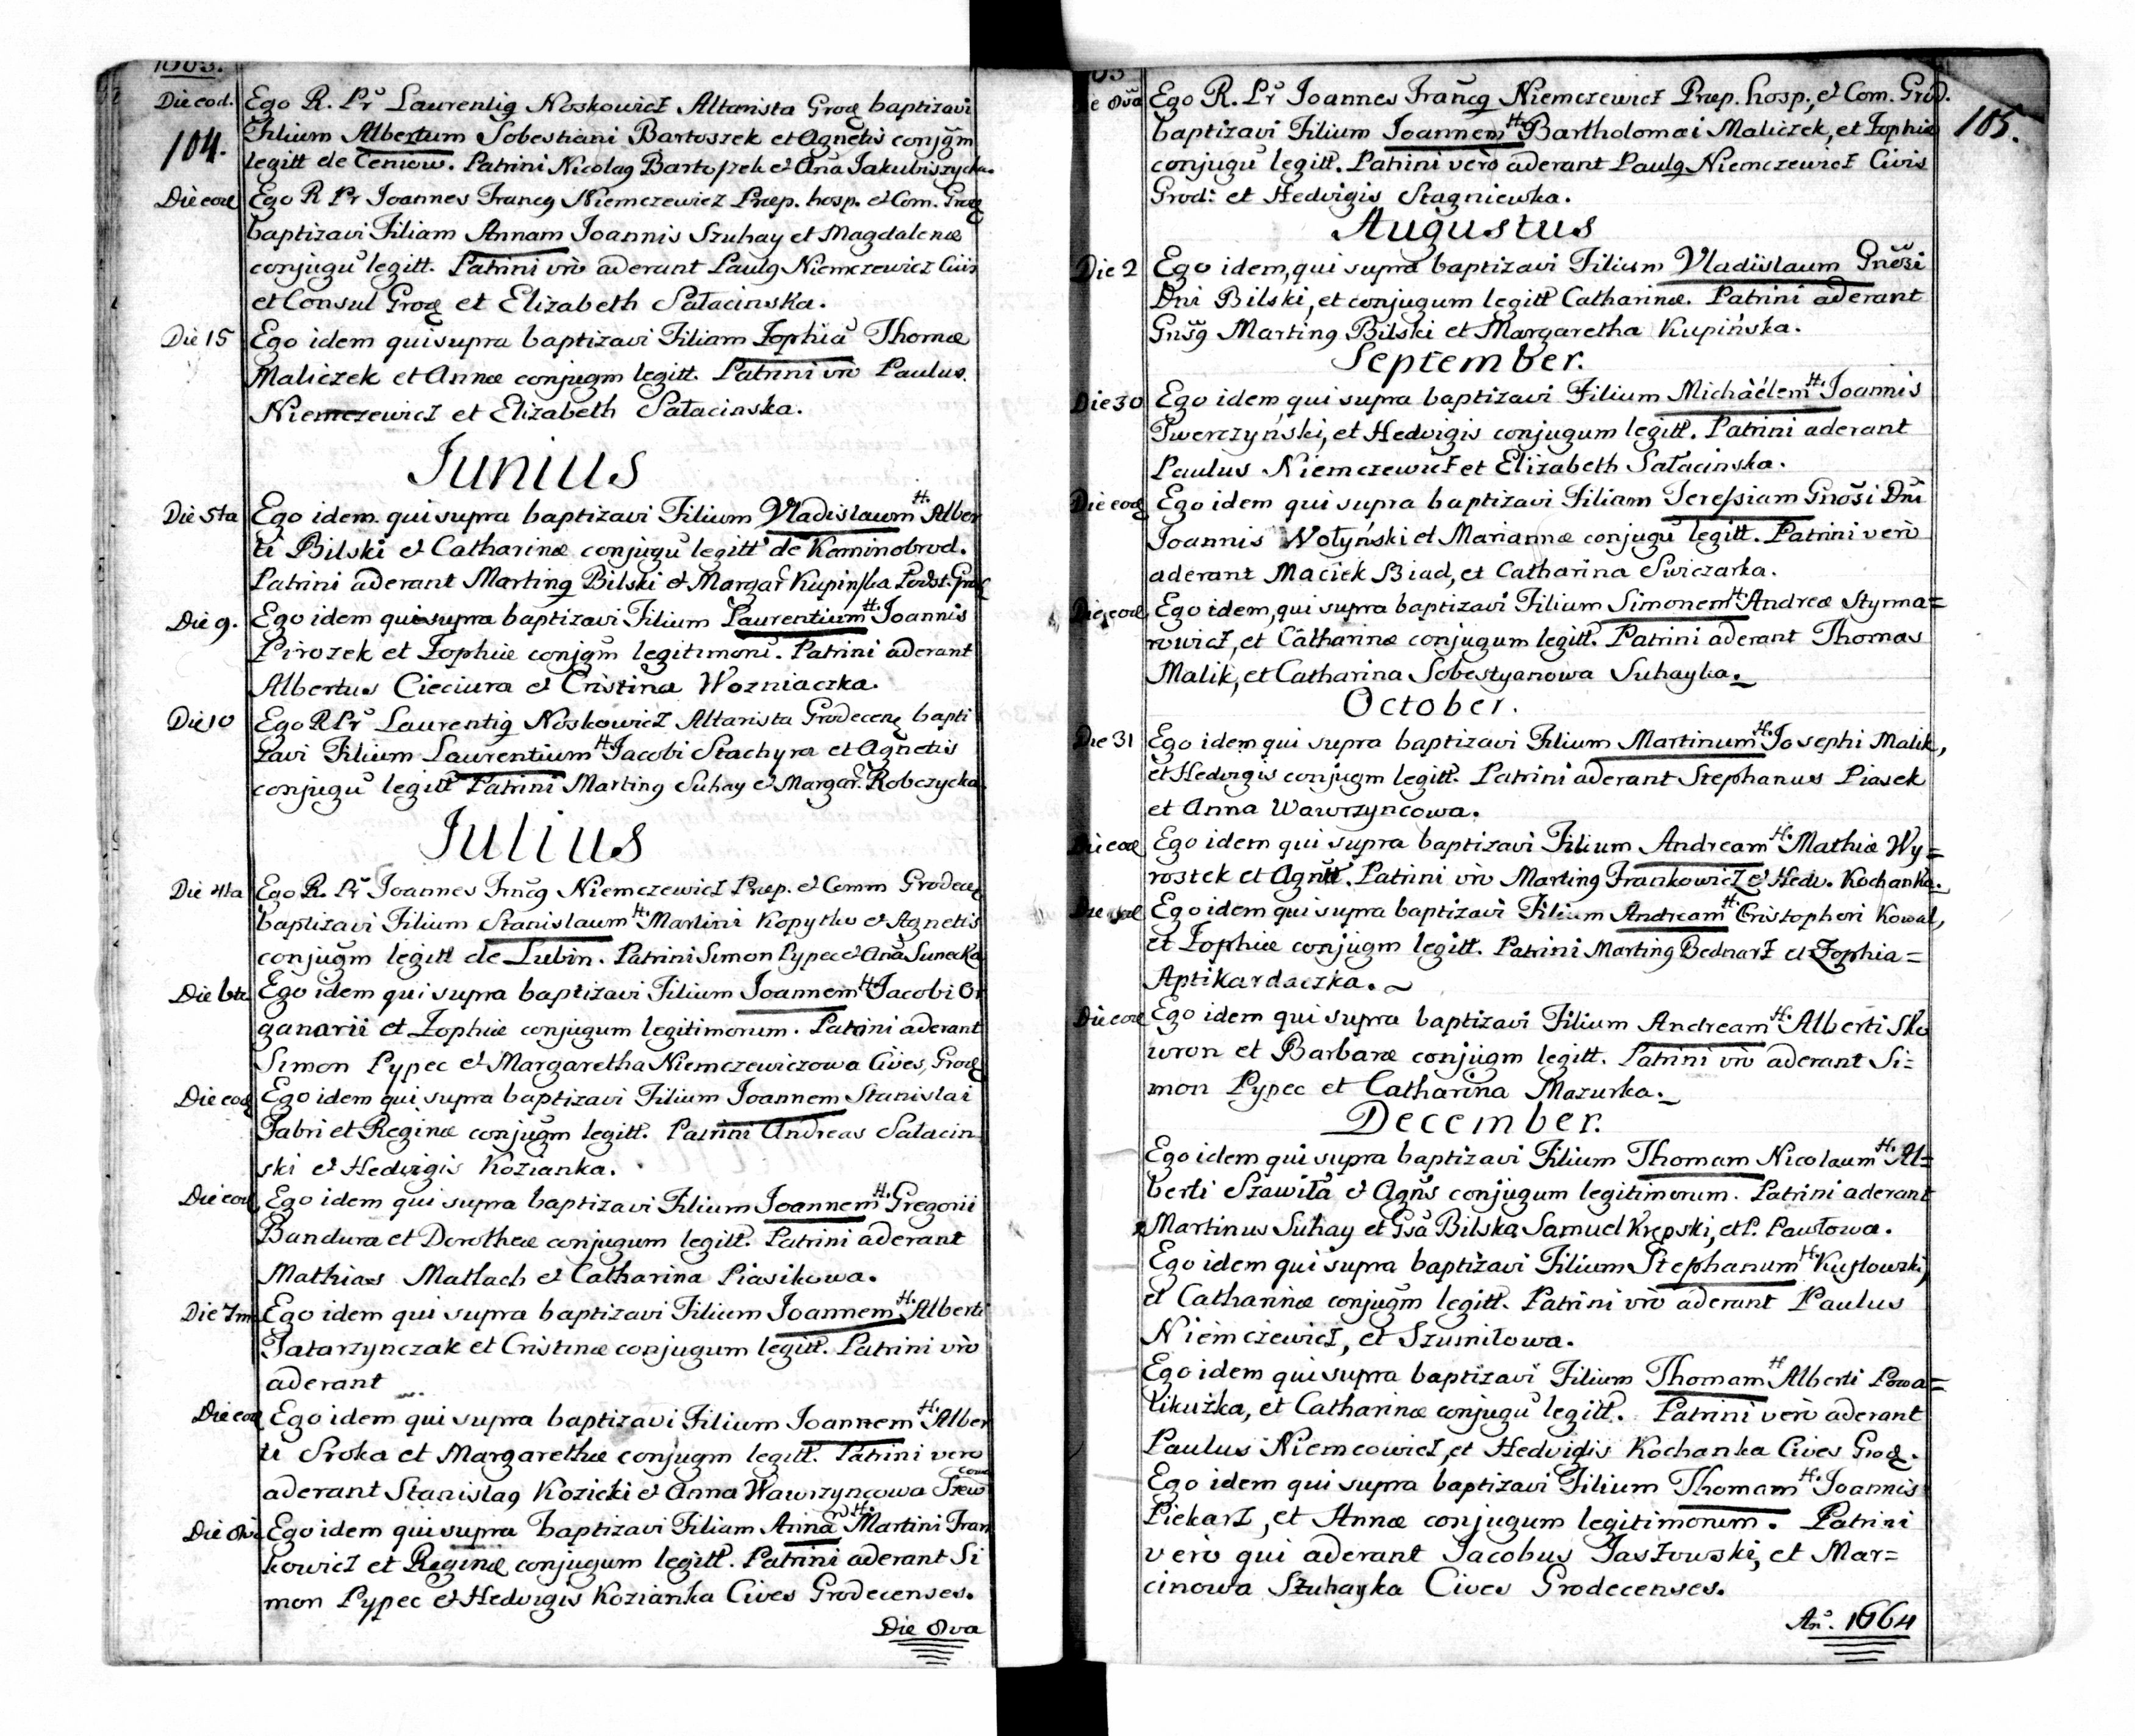 1663.
Die eod. Ego R. Pr Laurentig Noskowicz Altarista Grod baptizavi
104. Filium Albertum Sobestiani Bartoszek et Agnetis conjgm
legitt de Ceniow. Patrini Nicolag Bartoszek et Ana Jakubiszycka.
Die eod Ego R Pr Joannes Francg Niemczewicz Præp. hosp. et Com. Grod
baptizavi Filiam Annam Joannis Szuhay et Magdalenæ
conjugu legitt. Patrini vro aderant Paulg Niemczewicz Civis
et Consul Grod et Elizabeth Sałacinska.
Die 15 Ego idem qui supra baptizavi Filiam Zophia Thomæ
Maliczek et Annæ conjugm legitt. Patrini vro Paulus.
Niemczewicz et Elizabeth Sałacinska.
Junius
Die 5ta Ego idem qui supra baptizavi Filium Vladislaum H. Alber
ti Bilski et Catharinæ conjugu legitt de Kaminobrod.
Patrini aderant Marting Bilski et Margar Kupinska
Die 9. Ego idem qui supra baptizavi Filium Laurentium H. Joannis
Pirozek et Zophiæ conjgm legitimoru. Patrini aderant
Albertus Cieciura et Cristina Wozniaczka.
Die 10 Ego R Pr Laurentig Noskowicz Altarista Grodecen bapti
zavi Filium Laurentium H. Jacobi Stachyra et Agnetis
conjugu legitt Patrini Marting Suhay et Margar. Robczycka.
Julius
Die 4ta Ego R. Pr Joannes Frncg Niemczewicz Præp. et Comm Grodece
baptizavi Filium Stanislaum H. Martini Kopytko et Agnetis
conjugm legitt de Lubin. Patrini Simon Pypec et Ana Sunecka
Die 6ta Ego idem qui supra baptizavi Filium Joannem H. Jacobi Or
ganarii et Zophiæ conjugum legitimorum. Patrini aderant
Simon Pypec et Margaretha Niemczewiczowa Cives, Grod
Die eod Ego idem qui supra baptizavi Filium Joannem Stanislai
Fabri et Reginæ conjugm legitt. Patrini Andreas Sałacin
ski et Hedvigis Kozianka.
Die eod Ego idem qui supra baptizavi Filium Joannem H. Gregorii
Bandura et Dorotheæ conjugum legitt. Patrini aderant
Mathias Matłach et Catharina Piasikowa.
Die 7ma Ego idem qui supra baptizavi Filium Joannem H. Alberti
Tatarzynczak et Cristinæ conjugum legitt. Patrini vro
aderant
Die eod Ego idem qui supra baptizavi Filium Joannem H. Alber
ti Sroka et Margarethæ conjugm legitt. Patrini vero
aderant Stanislag Kozicki et Anna Wawrzyncowa Szew
cowa
Die 8va Ego idem qui supra baptizavi Filiam Anna H. Martini Fran
kowicz et Reginæ conjugum legitt. Patrini aderant Si
mon Pypec et Hedvigis Kozianka Cives Grodecenses.
Die 8va
63
Die 8va Ego R. Pr Joannes Francg Niemczewicz Præp. hosp., et Com. Grod.
105.
baptizavi Filium Joannem H. Bartholomæi Maliczek, et Zophiæ
conjugu legitt. Patrini vero aderant Paulg Niemczewicz Civis
Grod: et Hedvigis Stagniewka.
Augustus
Die 2 Ego idem, qui supra baptizavi Filium Vladislaum Gnosi
Dni Bilski, et conjugum legitt Catharinæ. Patrini aderant
Gnsg Marting Bilski et Margaretha Kupińska.
September.
Die 30 Ego idem qui supra baptizavi Filium Michaelem H. Joannis
Twerczyński, et Hedvigis conjugum legitt. Patrini aderant
Paulus Niemczewicz et Elizabeth Sałacinska.
Die eod Ego idem qui supra baptizavi Filiam Teressiam Gnosi Dni
Joannis Wołyński et Mariannæ conjugu legitt. Patrini vero
aderant Maciek Biad, et Catharina Swiczarka.
Die eod Ego idem, qui supra baptizavi Filium Simonem H. Andreæ Styrma=
rowicz, et Catharinæ conjugum legitt. Patrini aderant Thomas
Malik, et Catharina Sobestyanowa Suhayka.
October.
Die 31 Ego idem qui supra baptizavi Filium Martinum H. Josephi Malik,
et Hedvigis conjugm legitt. Patrini aderant Stephanus Piasek
et Anna Wawrzyncowa.
Die eod Ego idem qui supra baptizavi Filium Andream H. Mathiæ Wy=
rostek et Agntt. Patrini vro Marting Frankowicz et Hedv. Kochanka.
Die eod Ego idem qui supra baptizavi Filium Andream H. Cristopheri Kowal,
et Zophiæ conjugm legitt. Patrini Marting Bednarz et Zophia=
Aptikardaczka.
Die eod Ego idem qui supra baptizavi Filium Andream H. Alberti Sko
wron et Barbaræ conjugm legitt. Patrini vro aderant Si=
mon Pypec et Catharina Mazurka.
December.
Ego idem qui supra baptizavi Filium Thomam Nicolaum H. Al=
berti Szawiła et Agns conjugum legitimorum. Patrini aderant
Martinus Suhay et Gsa Bilska Samuel Krępski, et P. Pawłowa.
Ego idem qui supra baptizavi Filium Stephanum H. Kuszlowski,
et Catharinæ conjugm legitt. Patrini vro aderant Paulus
Niemczewicz, et Szumiłowa.
Ego idem qui supra baptizavi Filium Thomam H Alberti Powa=
likużka, et Catharinæ conjugu legitt. Patrini vero aderant
Paulus Niemcowicz, et Hedvidis Kochanka Cives Grod.
Ego idem qui supra baptizavi Filium Thomam H. Joannis
Piekarz, et Annæ conjugum legitimorum. Patrini
vero qui aderant Jacobus Jaszowski, et Mar=
cinowa Szuhayka Cives Grodecenses.
An. 1664